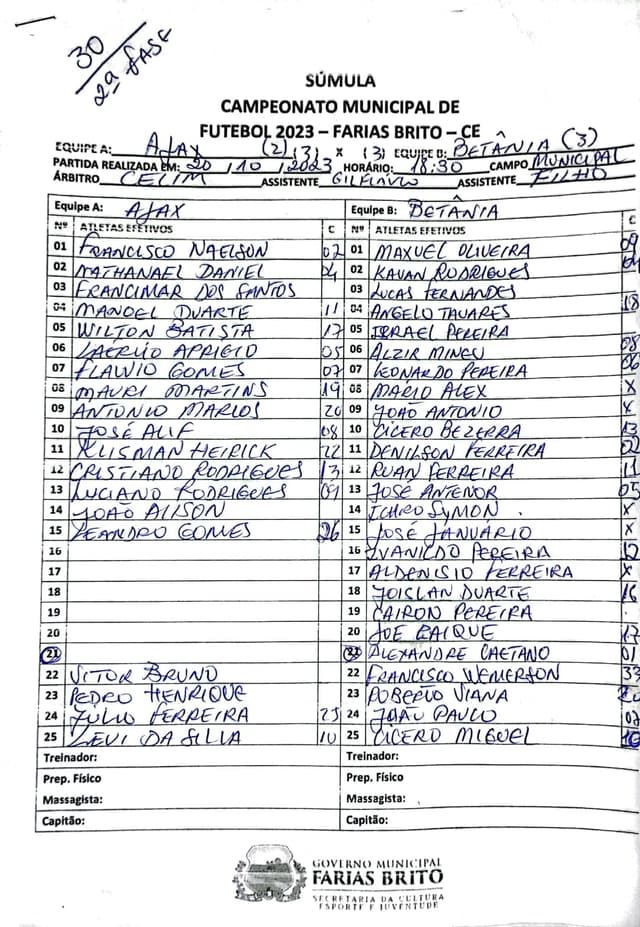 30
2ª FASE
SÚMULA
CAMPEONATO MUNICIPAL DE
FUTEBOL 2023 – FARIAS BRITO – CE
EQUIPE A: AJAX (2) (3) x (3) EQUIPE B: BETÂNIA (3)
PARTIDA REALIZADA EM: 20 / 10 / 2023 HORÁRIO: 18:30 CAMPO MUNICIPAL
ÁRBITRO CELIM ASSISTENTE GILFLAVIO ASSISTENTE FILHO
Equipe A: AJAX Equipe B: BETÂNIA
Nº ATLETAS EFETIVOS C Nº ATLETAS EFETIVOS C
01 FRANCISCO NAELSON 02 01 MAXUEL OLIVEIRA 09
02 NATHANAEL DANIEL 04 02 KAUAN RODRIGUES 04
03 FRANCIMAR DOS SANTOS 03 LUCAS FERNANDES
04 MANOEL DUARTE 11 04 ANGELO TAVARES 18
05 WILTON BATISTA 17 05 ISRAEL PEREIRA
06 LAÉRCIO APRIGIO 05 06 ALZIR MINEU 08
07 FLAVIO GOMES 07 07 LEONARDO PEREIRA 06
08 MAURI MARTINS 19 08 MÁRIO ALEX X
09 ANTONIO MARCOS 20 09 JOÃO ANTONIO X
10 JOSÉ ALIF 08 10 CÍCERO BEZERRA 13
11 KLISMAN HEIRICK 22 11 DENILSON FERREIRA 22
12 CRISTIANO RODRIGUES 13 12 RUAN FERREIRA 11
13 LUCIANO RODRIGUES 09 13 JOSÉ ANTENOR 05
14 JOÃO ALISON 14 ICARO SYMON . X
15 LEANDRO GOMES 26 15 JOSÉ JANUÁRIO X
16 16 IVANILDO PEREIRA 12
17 17 ALDENISIO FERREIRA X
18 18 JOISLAN DUARTE 16
19 19 CAIRON PEREIRA
20 20 JOE CAIQUE 17
21 21 ALEXANDRE CAETANO 01
22 VITOR BRUNO 22 FRANCISCO WEMERSON 33
23 PEDRO HENRIQUE 23 ROBERTO VIANA
24 JULIO FERREIRA 25 24 JOÃO PAULO
25 LEVI DA SILVA 10 25 CÍCERO MIGUEL 10
Treinador: Treinador:
Prep. Físico Prep. Físico
Massagista: Massagista:
Capitão: Capitão:
GOVERNO MUNICIPAL
FARIAS BRITO
SECRETARIA DA CULTURA
ESPORTE E JUVENTUDE